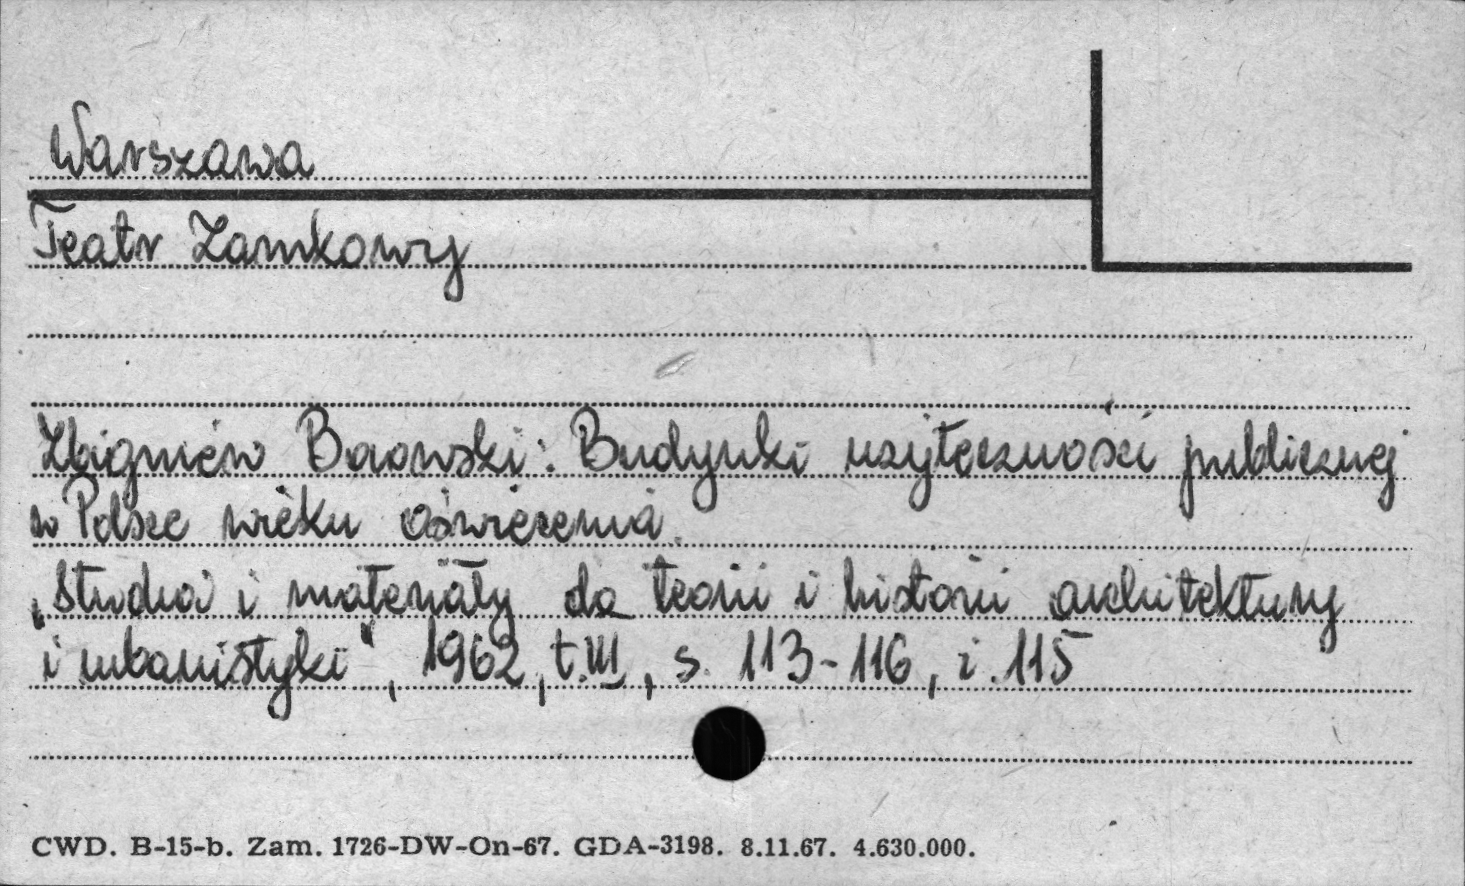 Warszawa
Teatr Zamkowy
Zbigniew Baowski: Budynki użyteczności publicznej
w Polsce wieku oświecenia.
„Studia i materiały do teorii i historii architektury
i urbanistyki", 1962, t.III, s. 113-116, i. 115
CWD. B-15-b. Zam. 1726-DW-On-67. GDA-3198. 8.11.67. 4.630.000.